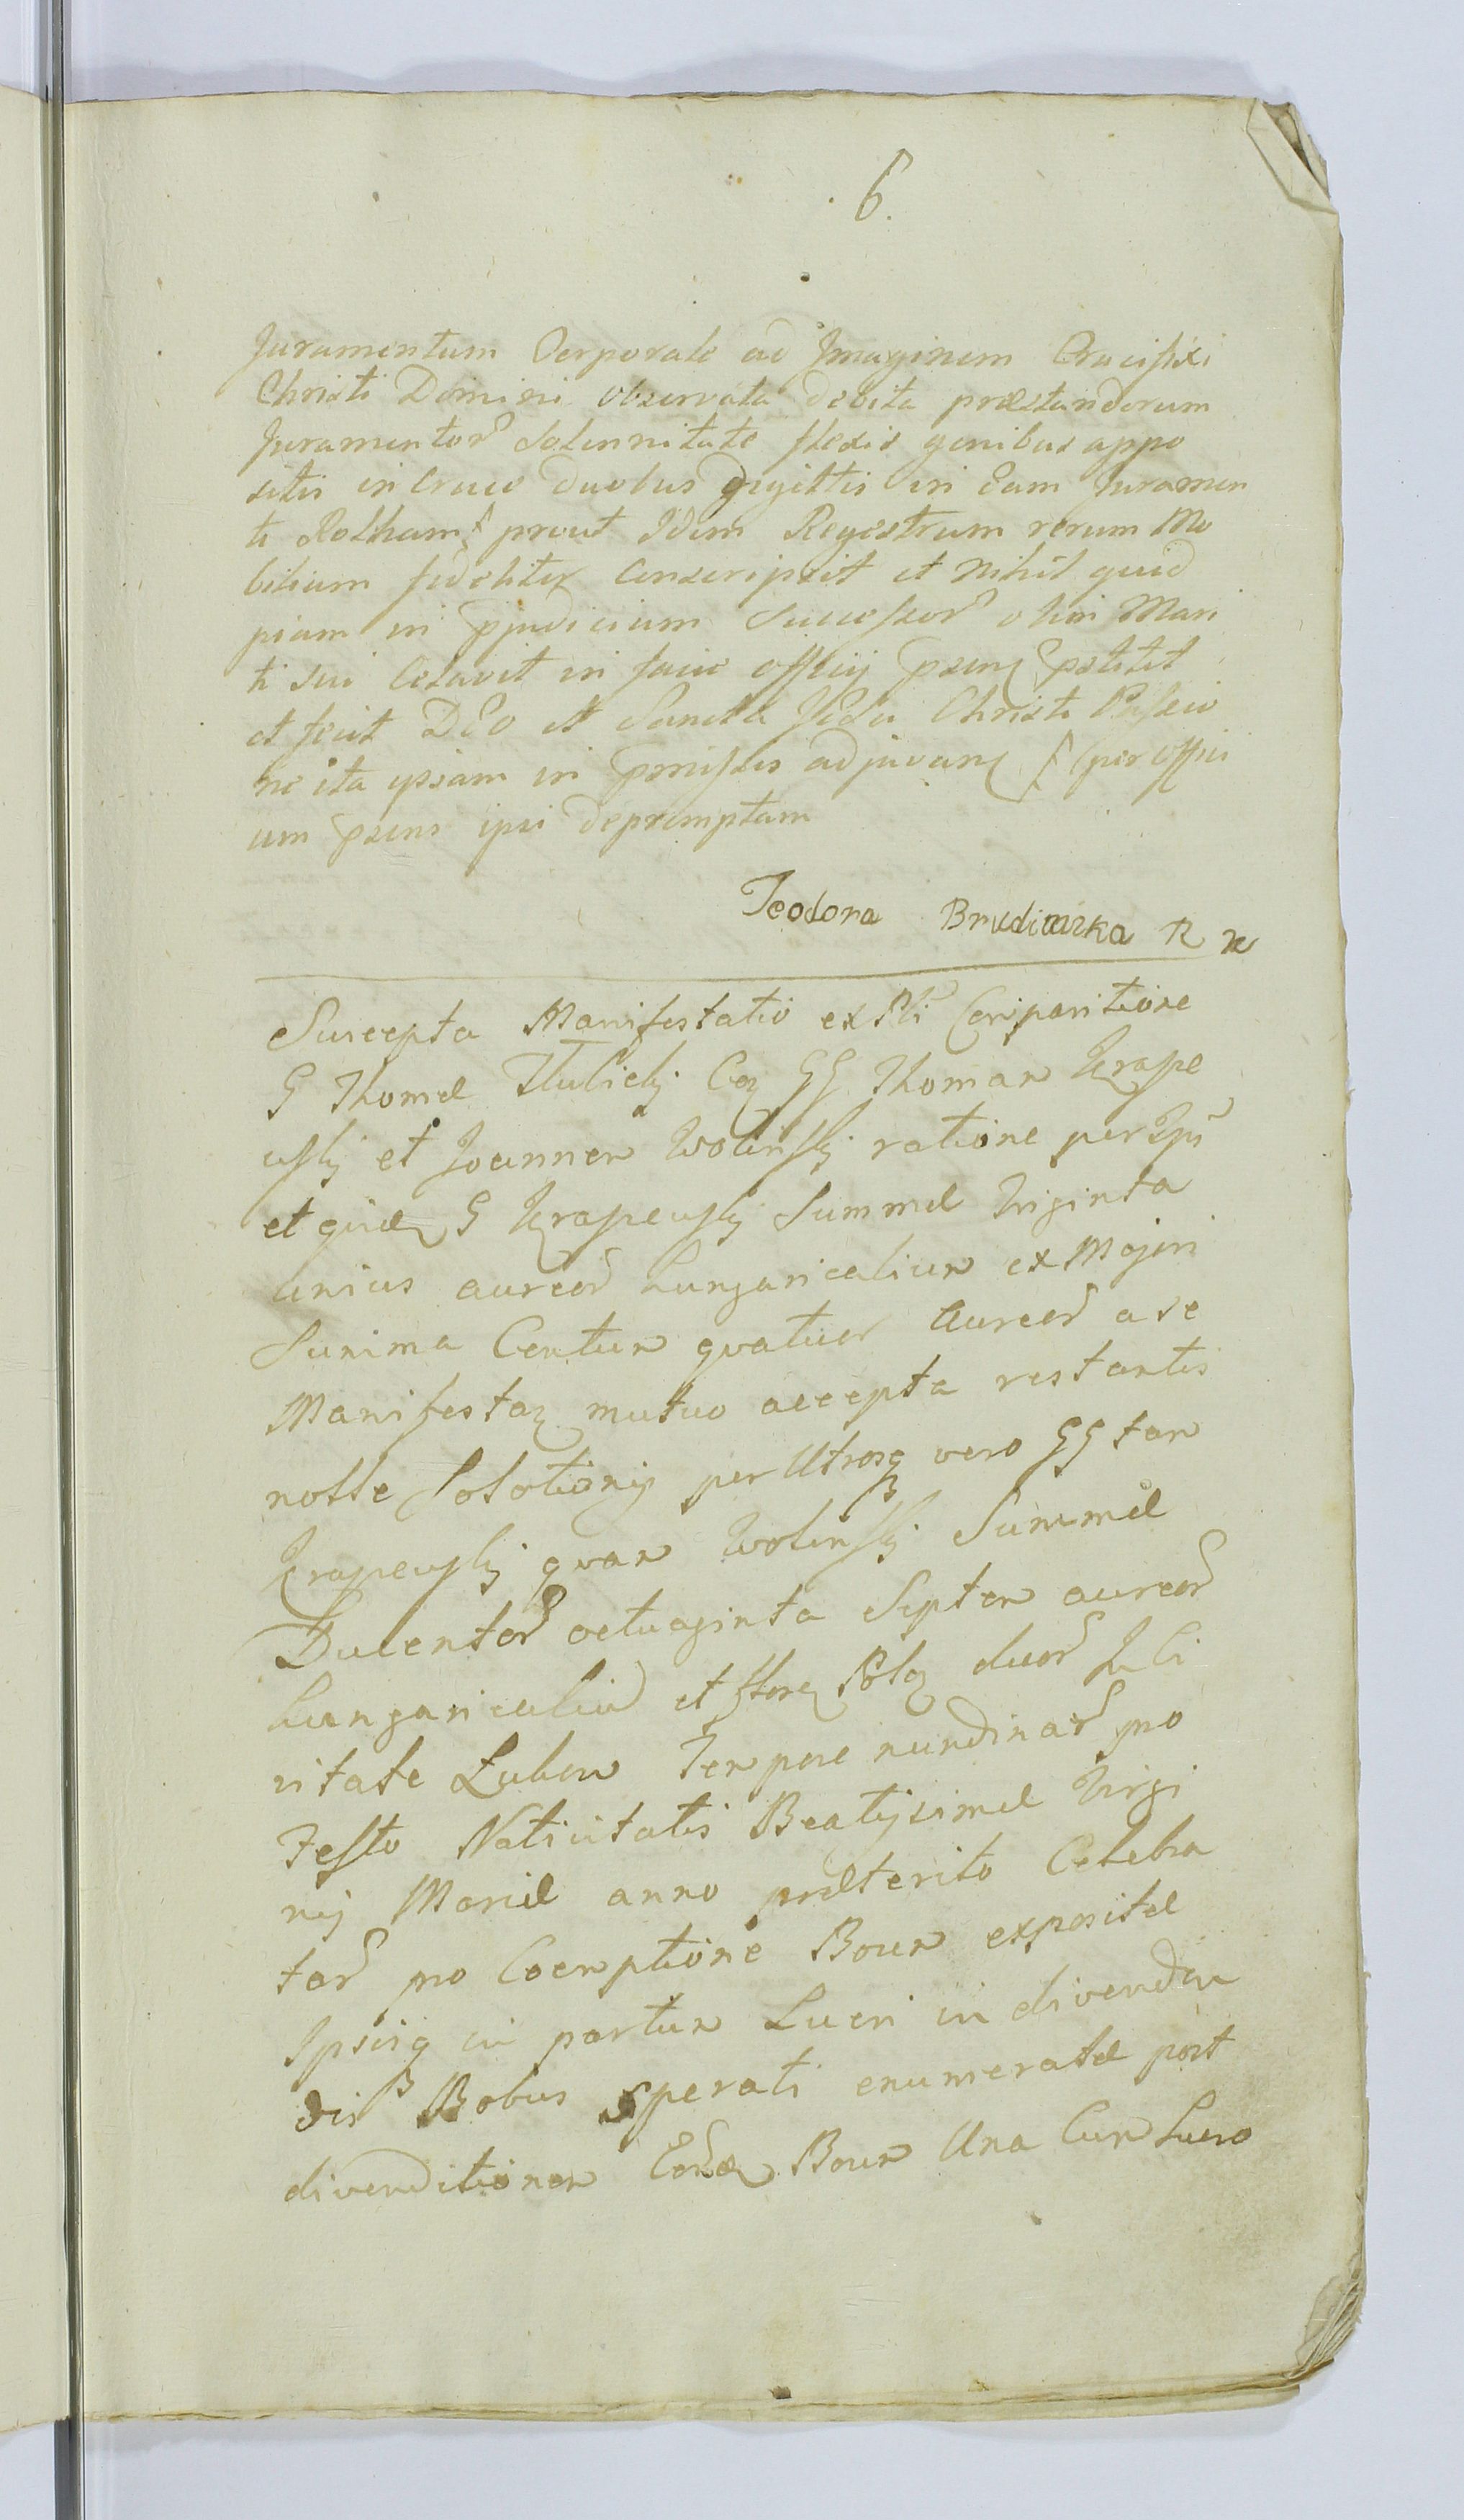 6.
Juramentum Corporale ad Imaginem Crucifixi
Christi Domini observata debita præstandorum
Juramentor solennitate flexis genibus appo
sitis in Cruce duobus digittis in Eam Juramen
ti Rotham prout Idem Regestrum rerum Mo
bilium fideliter Conscripsit et nihil quid
piam in pjudicium Successor olim Mari
ti sui Celavit in facie officij psenq pstitit
et fecit DEO et Sancta Jesu Christi Passio
ne ita ipsam in pmissis adjuvanq per offici
um psens ipsi depromptam
Teodora Brudnicka
Suscepta Manifestatio ex Comparitione
G Thomæ GG Thomam Krape
uski et Joannem Wolinski ratione per Ipsū
et quidē G Krapeuski Summæ triginta
unius aureor hungaricalium ex Majori
Summa Centum quatuor Aureor a se
Manifestaq mutuo accepta restantis
nolle Solutionis per Utrosq vero GG tam
Krapeuski quam Wolinski Summæ
Ducentor octuaginta Septem aureor
hungaricaliū et floreq Polq duor in Ci
vitate Lukow Tempore nundinar pro
Festo Nativitatis Beatissimæ Virgi
nis Mariæ anno præterito Celebra
tar pro Coemptione Boum expositæ
Ipsisq in partum Lucri in divenden
dis Bobus sperati enumeratæ post
divenditionem Eorūdē Boum Una Cum Lucro